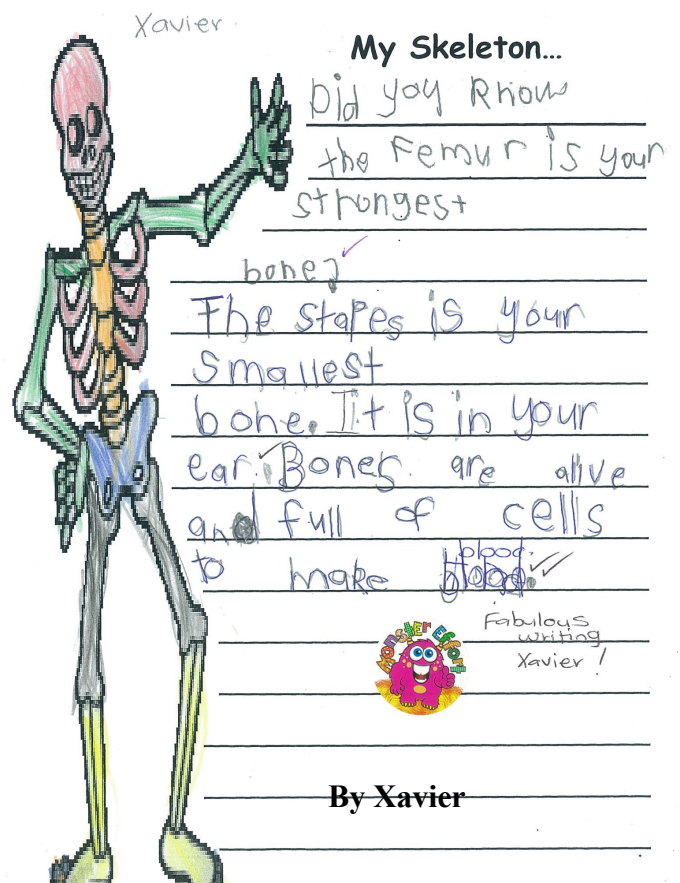 Xavier
My Skeleton...
Did you know
the Femur is your
strongest
bone?
The stapes is your
smallest
bone. It is in your
ear. Bones are alive
and full of cells
to make blood.
blood.
Monster Effort
Fabulous
writing
Xavier!
By Xavier